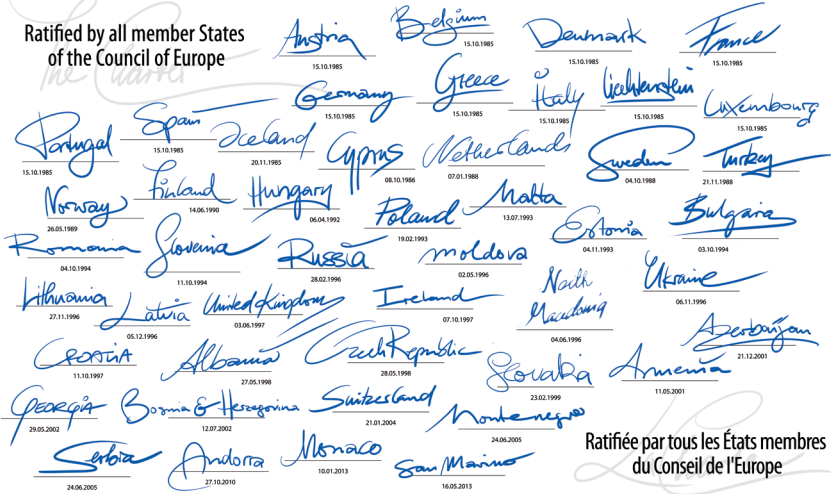 Ratified by all member States
of the Council of Europe
The Charter
Austria
15.10.1985
Belgium
15.10.1985
Denmark
15.10.1985
France
15.10.1985
Germany
15.10.1985
Greece
15.10.1985
Italy
15.10.1985
Liechtenstein
15.10.1985
Luxembourg
15.10.1985
Portugal
15.10.1985
Spain
15.10.1985
Iceland
20.11.1985
Cyprus
08.10.1986
Netherlands
07.01.1988
Sweden
04.10.1988
Turkey
21.11.1988
Norway
26.05.1989
Finland
14.06.1990
Hungary
06.04.1992
Poland
19.02.1993
Malta
13.07.1993
Estonia
04.11.1993
Bulgaria
03.10.1994
Romania
04.10.1994
Slovenia
11.10.1994
Russia
28.02.1996
moldova
02.05.1996
North
Macedonia
04.06.1996
Ukraine
06.11.1996
Lithuania
27.11.1996
Latvia
05.12.1996
United Kingdom
03.06.1997
Ireland
07.10.1997
Azerbaijan
21.12.2001
Croatia
11.10.1997
Albania
27.05.1998
Czech Republic
28.05.1998
Slovakia
23.02.1999
Armenia
11.05.2001
Georgia
29.05.2002
Bosnia & Herzegovina
12.07.2002
Switzerland
21.01.2004
Montenegro
24.06.2005
Serbia
24.06.2005
Andorra
27.10.2010
Monaco
10.01.2013
San Marino
16.05.2013
Ratifiée par tous les États membres
du Conseil de l'Europe